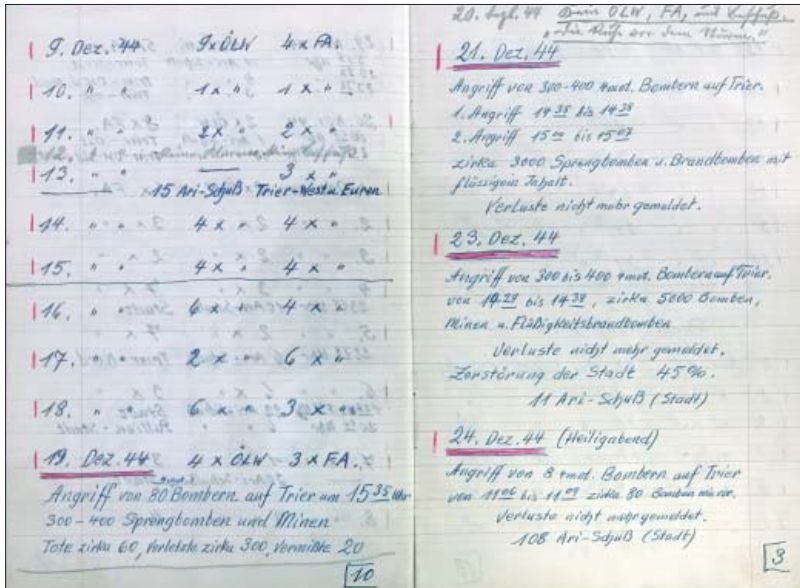 9. Dez. 44 9xÖLW 4xFA.
10. " " 1x " 1x "
11. " " 2x " 2x "
12.
13. " " — 3x "
15 Ari-Schuß Trier-West u. Euren
14. " " 4x " 4x "
15. " " 4x " 4x "
16. " " 6x " 4x "
17. " " 2x " 6x "
18. " " 6x " 3x "
19. Dez. 44 4xÖLW 3xFA.
Angriff von 80 Bombern auf Trier um 15 35 Uhr
300-400 Sprengbomben und Minen
Tote zirka 60, Verletzte zirka 300, Vermißte 20
10
20. 44 Kein ÖLW, FA, und
"Die Ruhe vor dem Sturm."
21. Dez. 44
Angriff von 300-400 4mot. Bombern auf Trier.
1. Angriff 14 35 bis 14 38
2. Angriff 15 00 bis 15 07
zirka 3000 Sprengbomben u. Brandbomben mit
flüssigem Inhalt.
Verluste nicht mehr gemeldet.
23. Dez. 44
Angriff von 300 bis 400 4mot. Bombern auf Trier.
von 14 29 bis 14 38, zirka 5000 Bomben,
Minen u. Flüßigkeitsbrandbomben
Verluste nicht mehr gemeldet.
Zerstörung der Stadt 45%.
11 Ari-Schuß (Stadt)
24. Dez. 44 (Heiligabend)
Angriff von 8 4mot. Bombern auf Trier
von 11 06 bis 11 09 zirka 80 Bomben
Verluste nicht mehr gemeldet.
108 Ari-Schuß (Stadt)
3